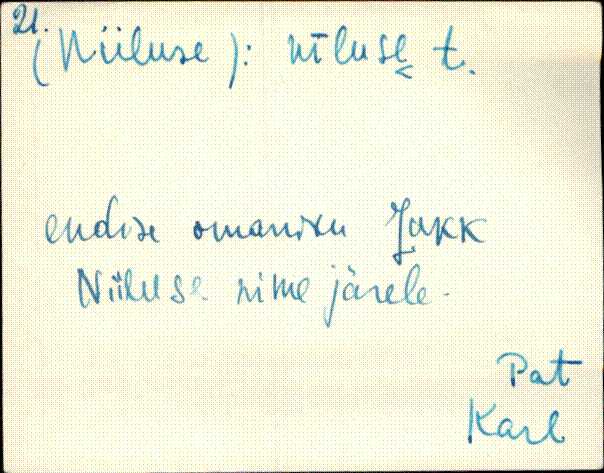 21.
(Niiluse): nīluse̬ t.
endise omaniku Jakk
Niiluse nime järele.
Pat
Karl